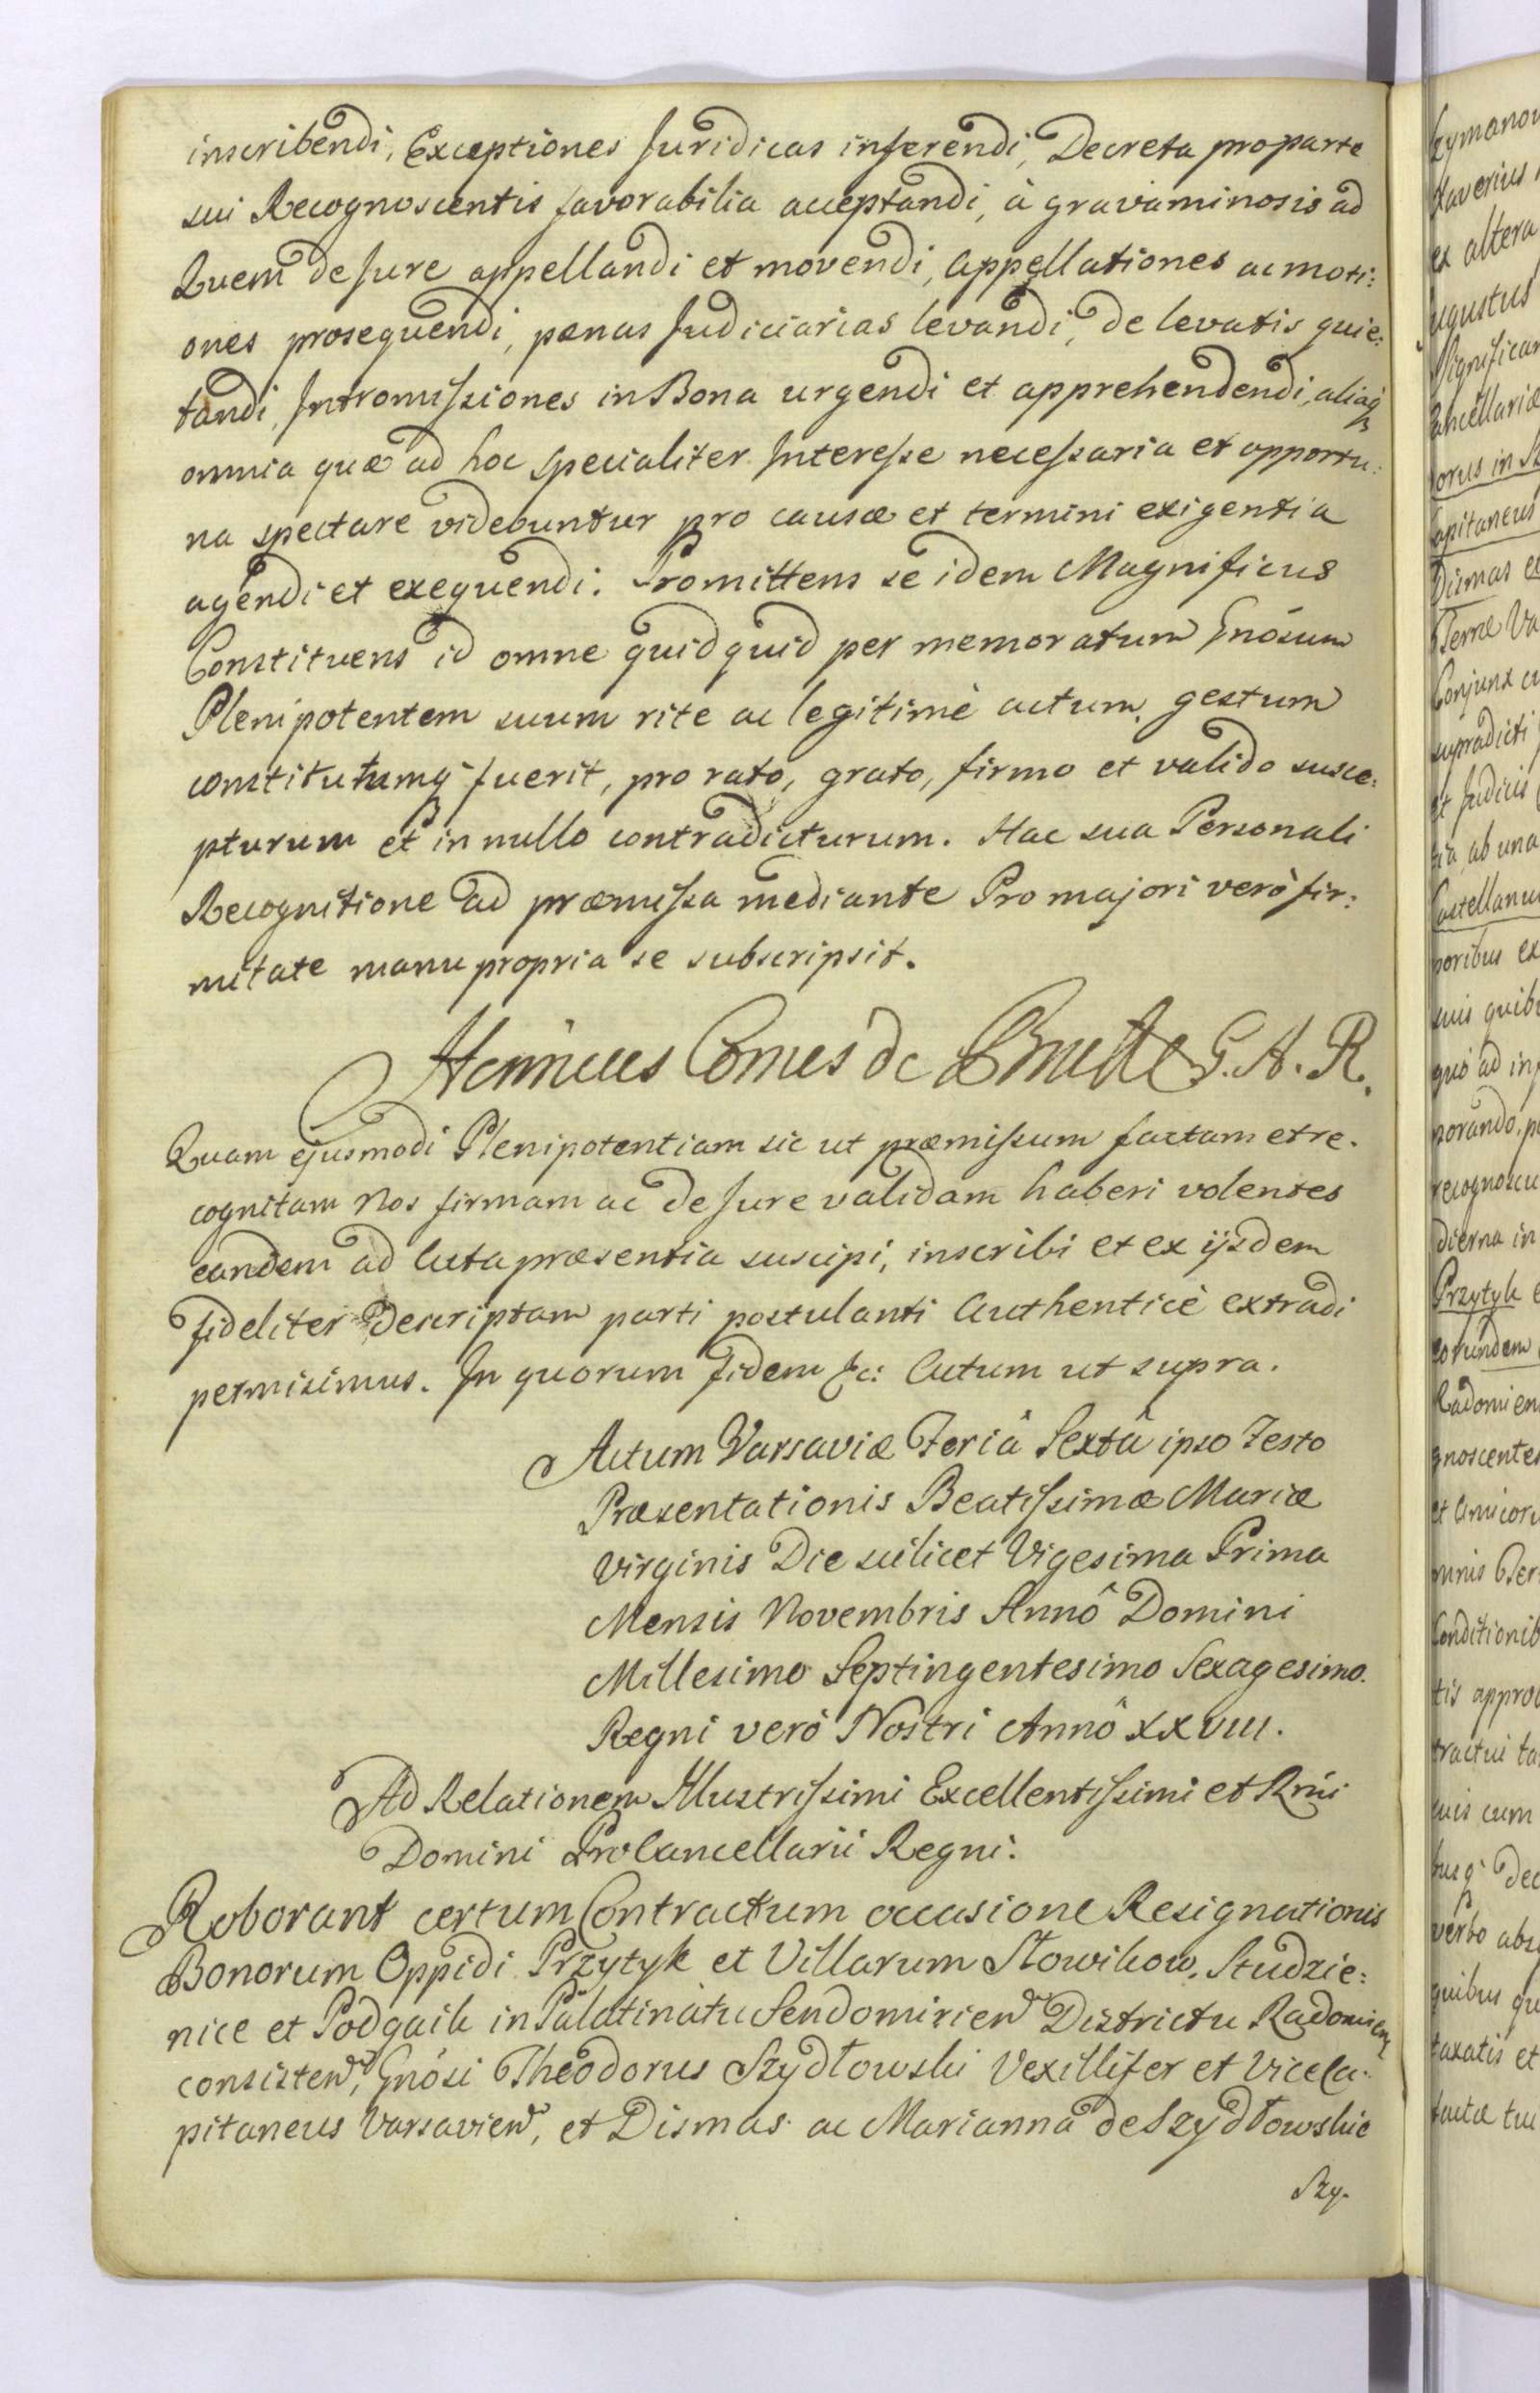 inscribendi, Exceptiones Juridicas inferendi, Decreta pro parte
sui Recognoscentis favorabilia acceptandi, à gravaminosis ad
Quem de Jure appellandi et movendi, appellationes ac moti:
ones prosequendi, pœnas Judiciarias levandi, de levatis quie:
tandi, Intromissiones in Bona urgendi et apprehendendi, aliaq
omnia quæ ad hoc specialiter Interesse necessaria et opportu:
na spectare videbuntur pro causæ et termini exigentia
agendi et exequendi. Promittens se idem Magnificus
Constituens id omne quidquid per memoratum Gnõsum
Plenipotentem suum rite ac legitimè actum, gestum
constitutumq fuerit, pro rato, grato, firmo et valido susce:
pturum et in nullo contradicturum. Hac sua Personali
Recognitione ad præmissa mediante Pro majori verò fir:
mitate manu propria se subscripsit.
Henricus Comes de Bruhl G. A. R.
Quam ejusmodi Plenipotentiam sic ut præmissum factam et re.
cognitam Nos firmam ac de Jure validam haberi volentes
eandem ad Acta præsentia suscipi, inscribi et ex ijsdem
fideliter descriptam parti postulanti Authenticè extradi
permisimus. In quorum fidem &c: Actum ut supra.
Actum Varsaviæ Feriâ Sextâ ipso Festo
Præsentationis Beatissimæ Mariæ
Virginis Die scilicet Vigesima Prima
Mensis Novembris Annô Domini
Millesimo Septingentesimo Sexagesimo.
Regni verò Nostri Annô XXVIII.
Ad Relationem Illustrissimi Excellentissimi et Rmi
Domini ProCancellarii Regni.
Roborant certum Contractum occasione Resignationis
Bonorum Oppidi Przytyk et Villarum Słowikow, Studzie:
nice et Podgaik in Palatinatu Sendomirien Districtu Radomien
consisten, Gnõsi Theodorus Szydłowski Vexillifer et ViceCa.
pitaneus Varsavien, et Dismas ac Marianna de Szydłowskie
Szy.
ex altera
Przytyk